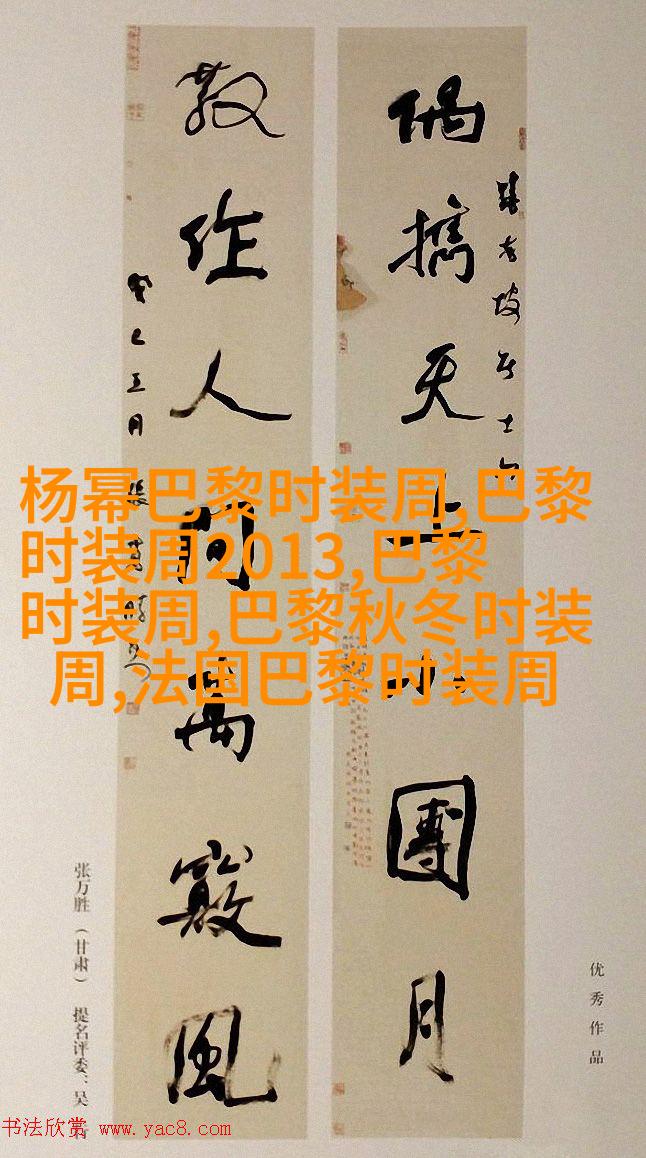 杨幂巴黎时装周,巴黎
时装周2013,巴黎
时装周,巴黎秋冬时装
周,法国巴黎时装周
偶攜天上小團月
散作人間萬竅風
癸巳五月
优秀作品
张万胜（甘肃） 提名评委：吴
书法欣赏 www.yac8.com